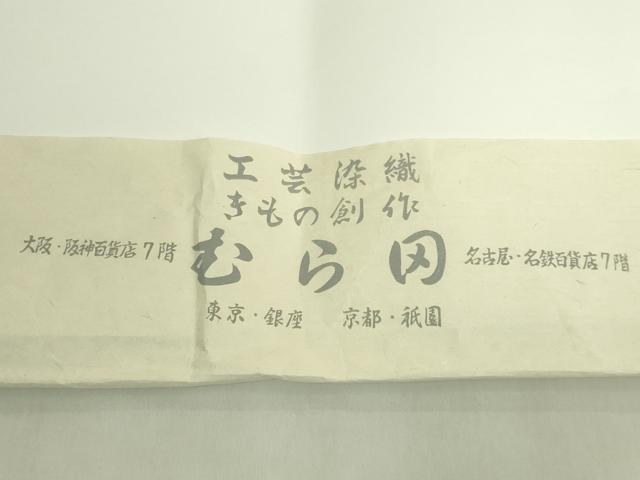 工芸染織
きもの創作
大阪・阪神百貨店7階
むら岡
名古屋・名鉄百貨店7階
東京・銀座 京都・祇園